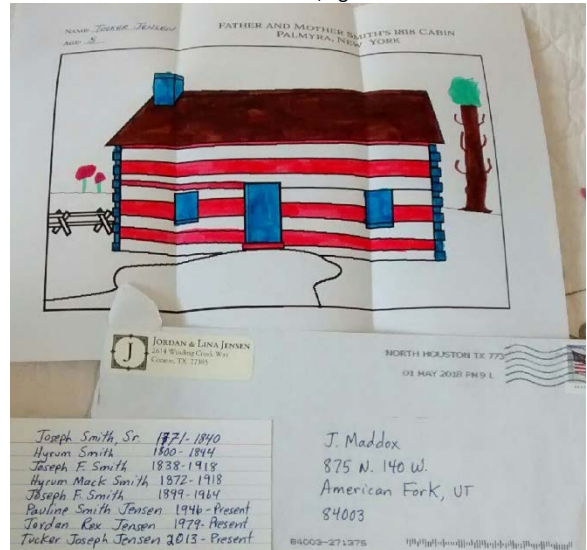 NAME: Tucker Jensen
AGE: 5
FATHER AND MOTHER SMITH'S 1818 CABIN
PALMYRA, NEW YORK
J
JORDAN & LINA JENSEN
2614 Winding Creek Way
Conroe, TX 77385
NORTH HOUSTON TX 773
01 MAY 2018 PM 9 L
Joseph Smith, Sr. 1771-1840
Hyrum Smith 1800-1844
Joseph F. Smith 1838-1918
Hyrum Mack Smith 1872-1918
Joseph F. Smith 1899-1964
Pauline Smith Jensen 1946-Present
Jordan Rex Jensen 1979-Present
Tucker Joseph Jensen 2013-Present
J. Maddox
875 N. 140 W.
American Fork, UT
84003
84003-271375